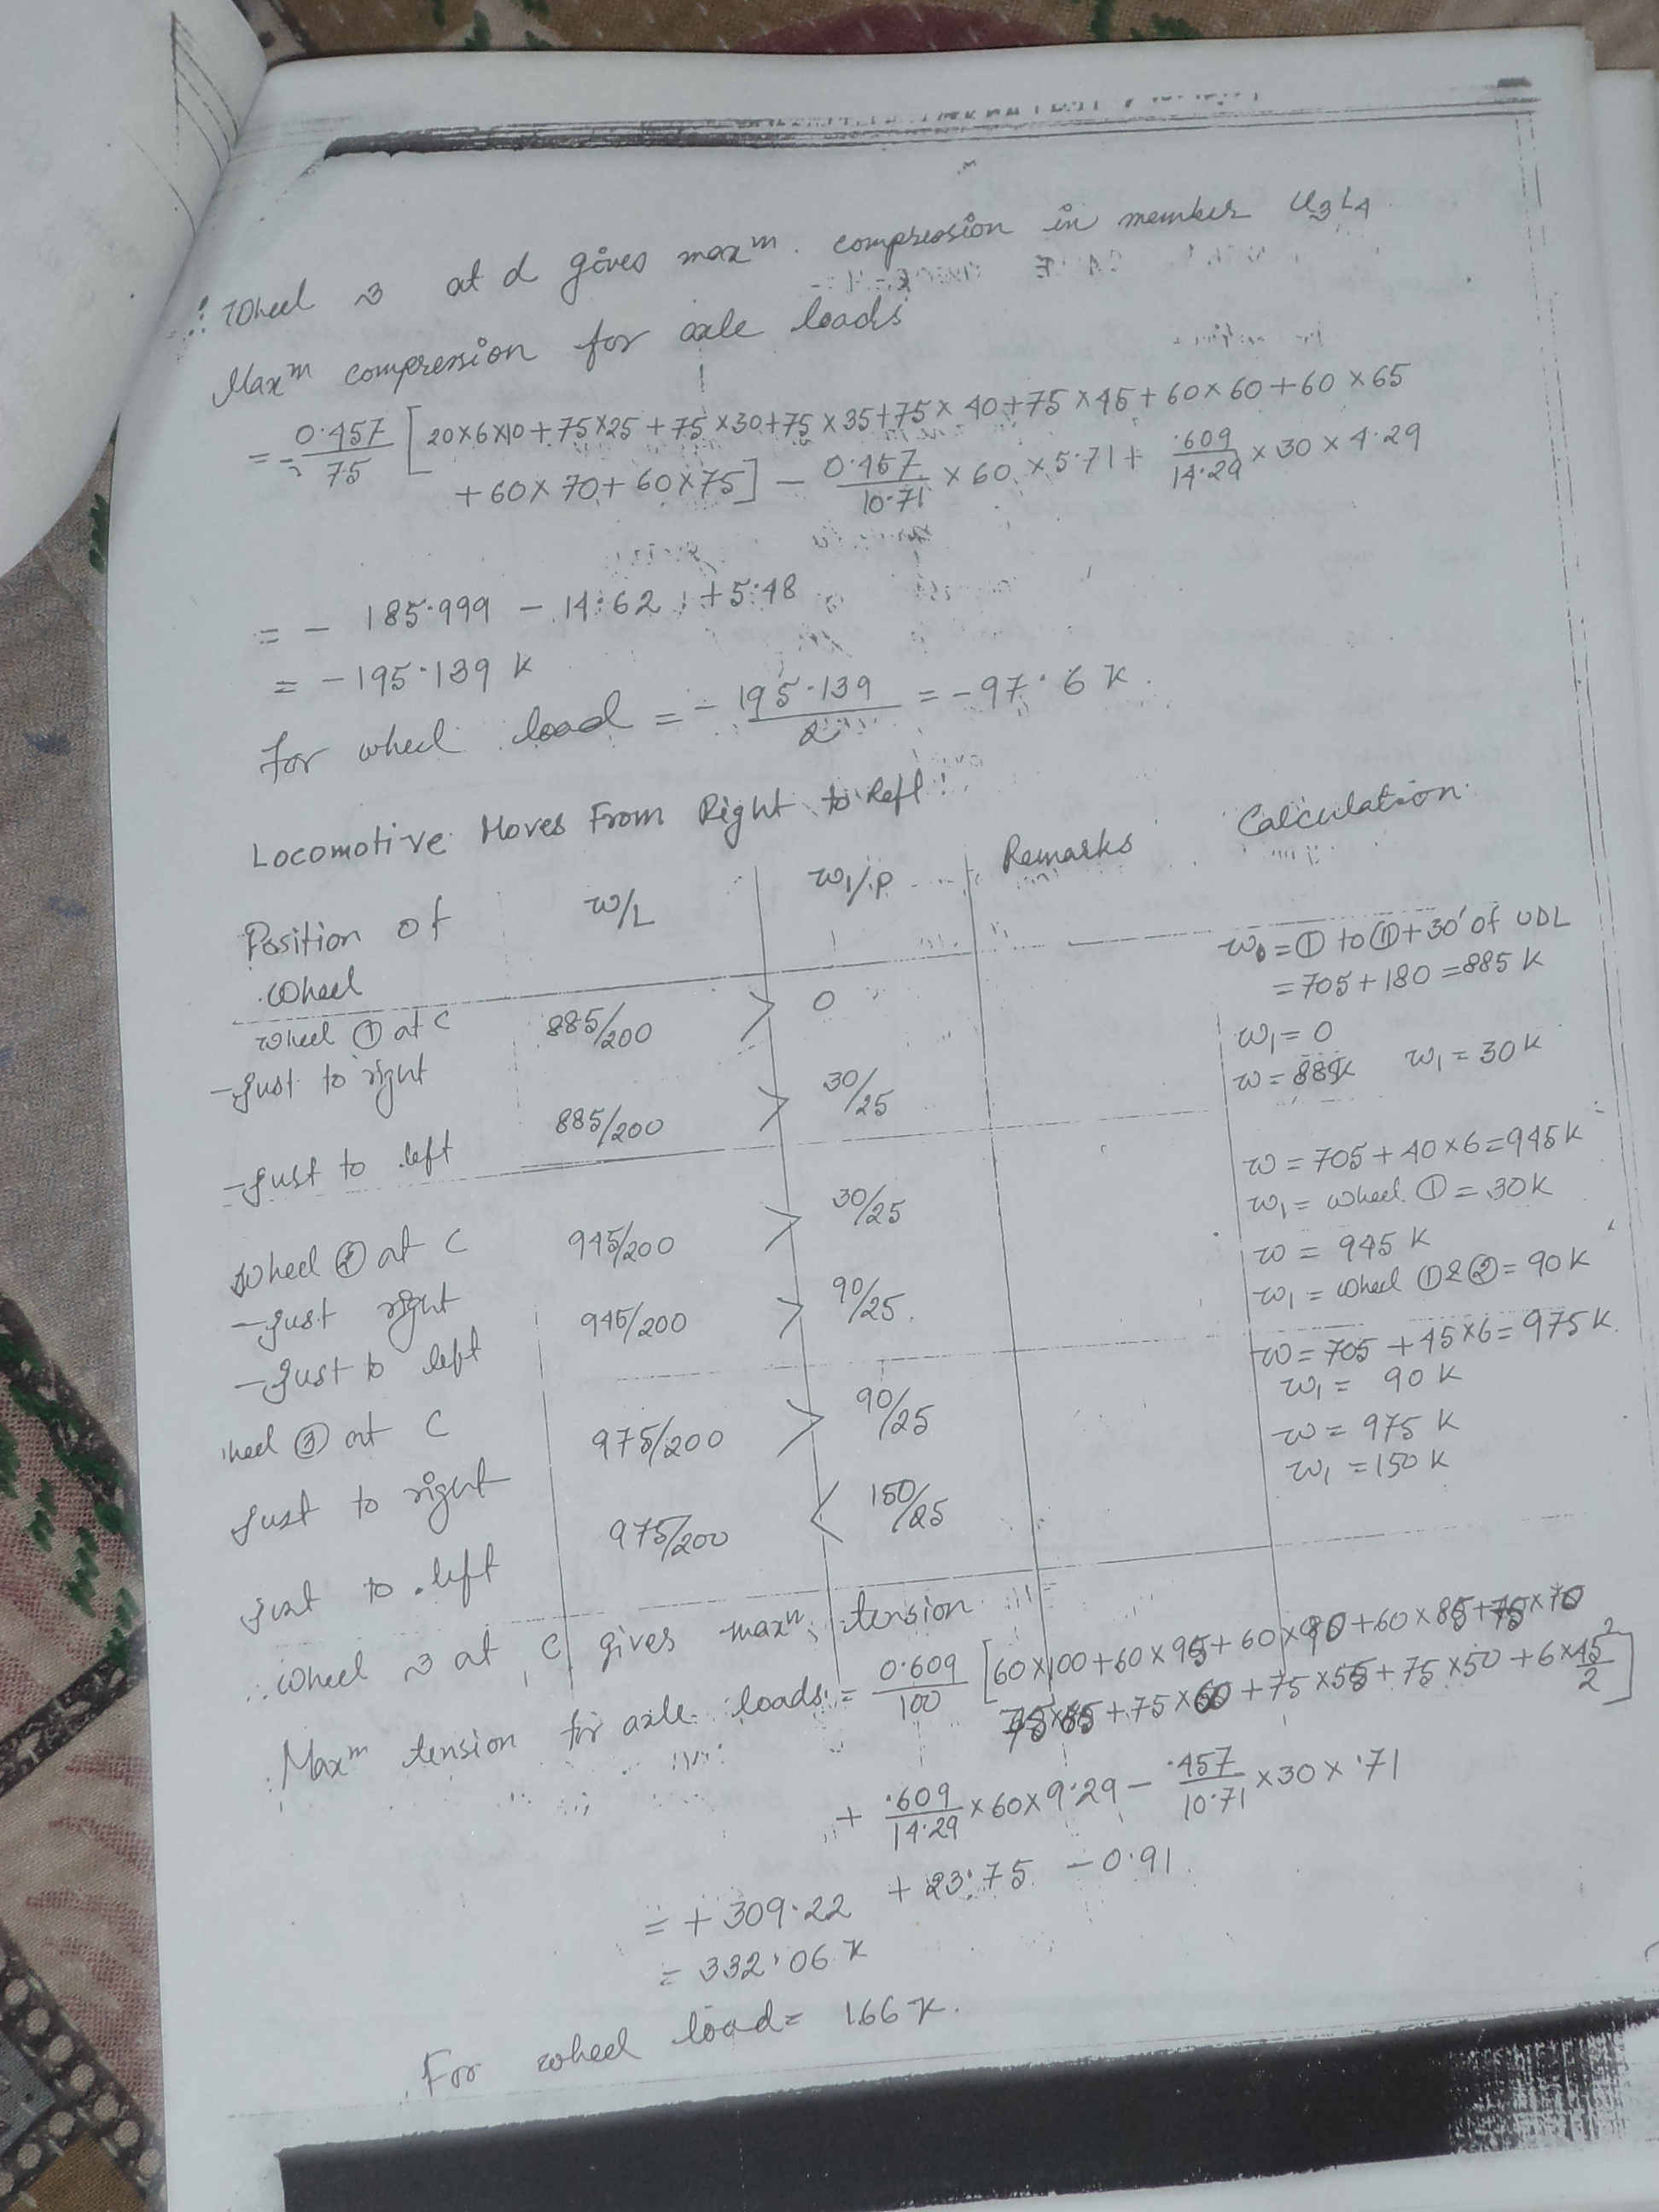 ∴ Wheel 3 at d gives maxᵐ. compression in member U₃L₄
Maxᵐ compression for axle loads
= - 0.457/75 [20×6×10+75×25+75×30+75×35+75×40+75×45+60×60+60×65
+60×70+60×75] - 0.457/10.71 ×60×5.71+ .609/14.29 ×30×4.29
= - 185.999 - 14.62 +5.48
= -195.139 K
For wheel load = - 195.139/2 = -97.6 K.
Locomotive Moves From Right to Left:
Position of Wheel W/L W₁/P Remarks Calculation
Wheel ① at C
-Just to right 885/200 > 0 W = ① to ⑪+30' of UDL
=705+180=885 K
W₁=0
-Just to left 885/200 > 30/25 W=885K W₁=30K
Wheel ② at C
-Just right 945/200 > 30/25 W=705+40×6=945K
W₁= wheel ①=30K
-Just to left 945/200 > 90/25 W = 945 K
W₁ = wheel ①&②=90K
heel ③ at C
Just to right 975/200 > 90/25 W=705+45×6=975K
W₁= 90K
Just to left 975/200 < 150/25 W=975K
W₁=150K
∴ Wheel 3 at C gives maxᵐ tension
Maxᵐ tension for axle loads = 0.609/100 [60×100+60×95+60×90+60×85+75×70
75×65+75×60+75×55+75×50+6×45²/2]
+ .609/14.29 ×60×9.29 - .457/10.71 ×30×.71
= +309.22 +23.75 -0.91
= 332.06 K
For wheel load = 166 K.